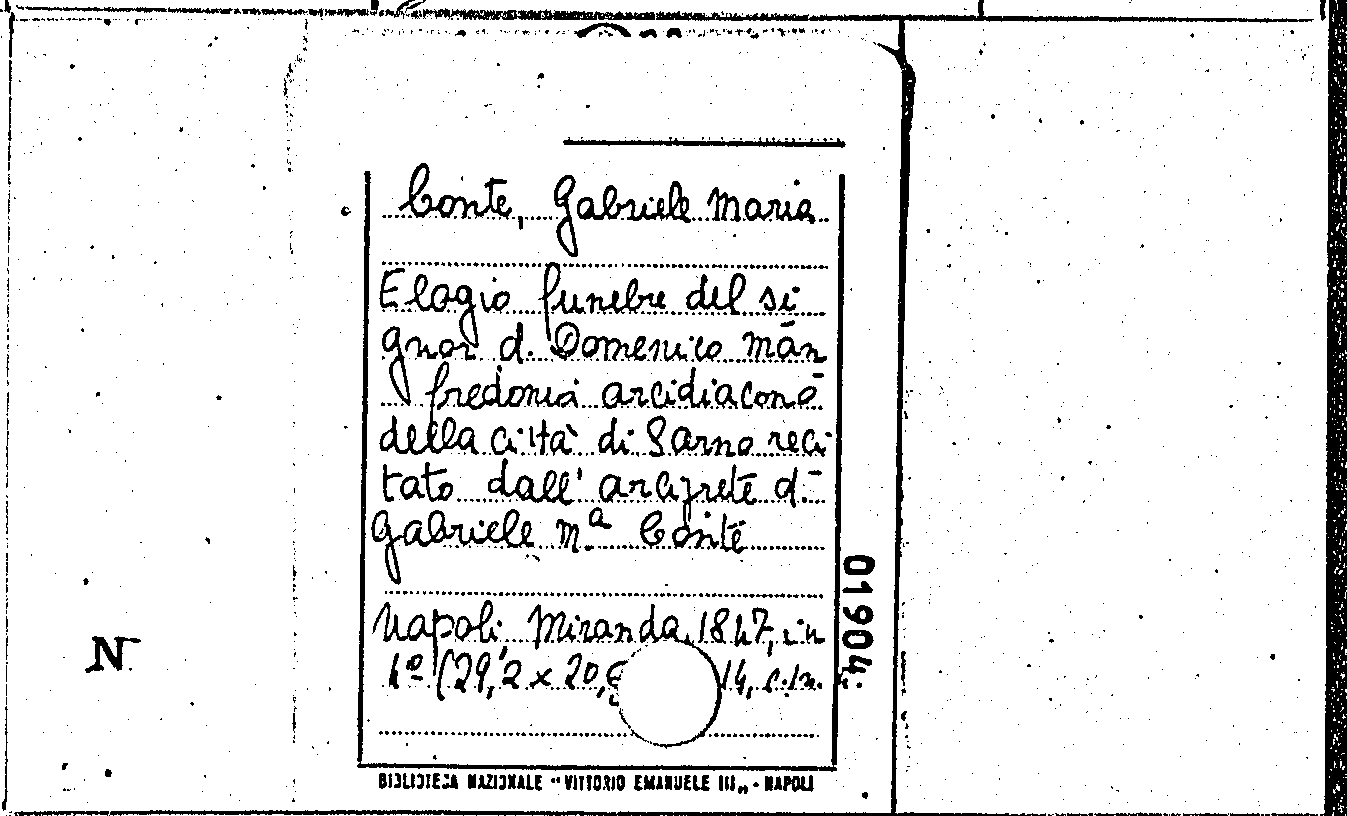 Conte, Gabriele Maria
Elogio funebre del si
gnor d. Domenico Man
fredonia arcidiacono
della città di Sarno reci
tato dall' arciprete d.
Gabriele M.ª Conte
Napoli, Miranda, 1847, in
4º (29,2 x 20, 14, c.1n.
01904
N
BIBLIOTECA NAZIONALE "VITTORIO EMANUELE III„ - NAPOLI